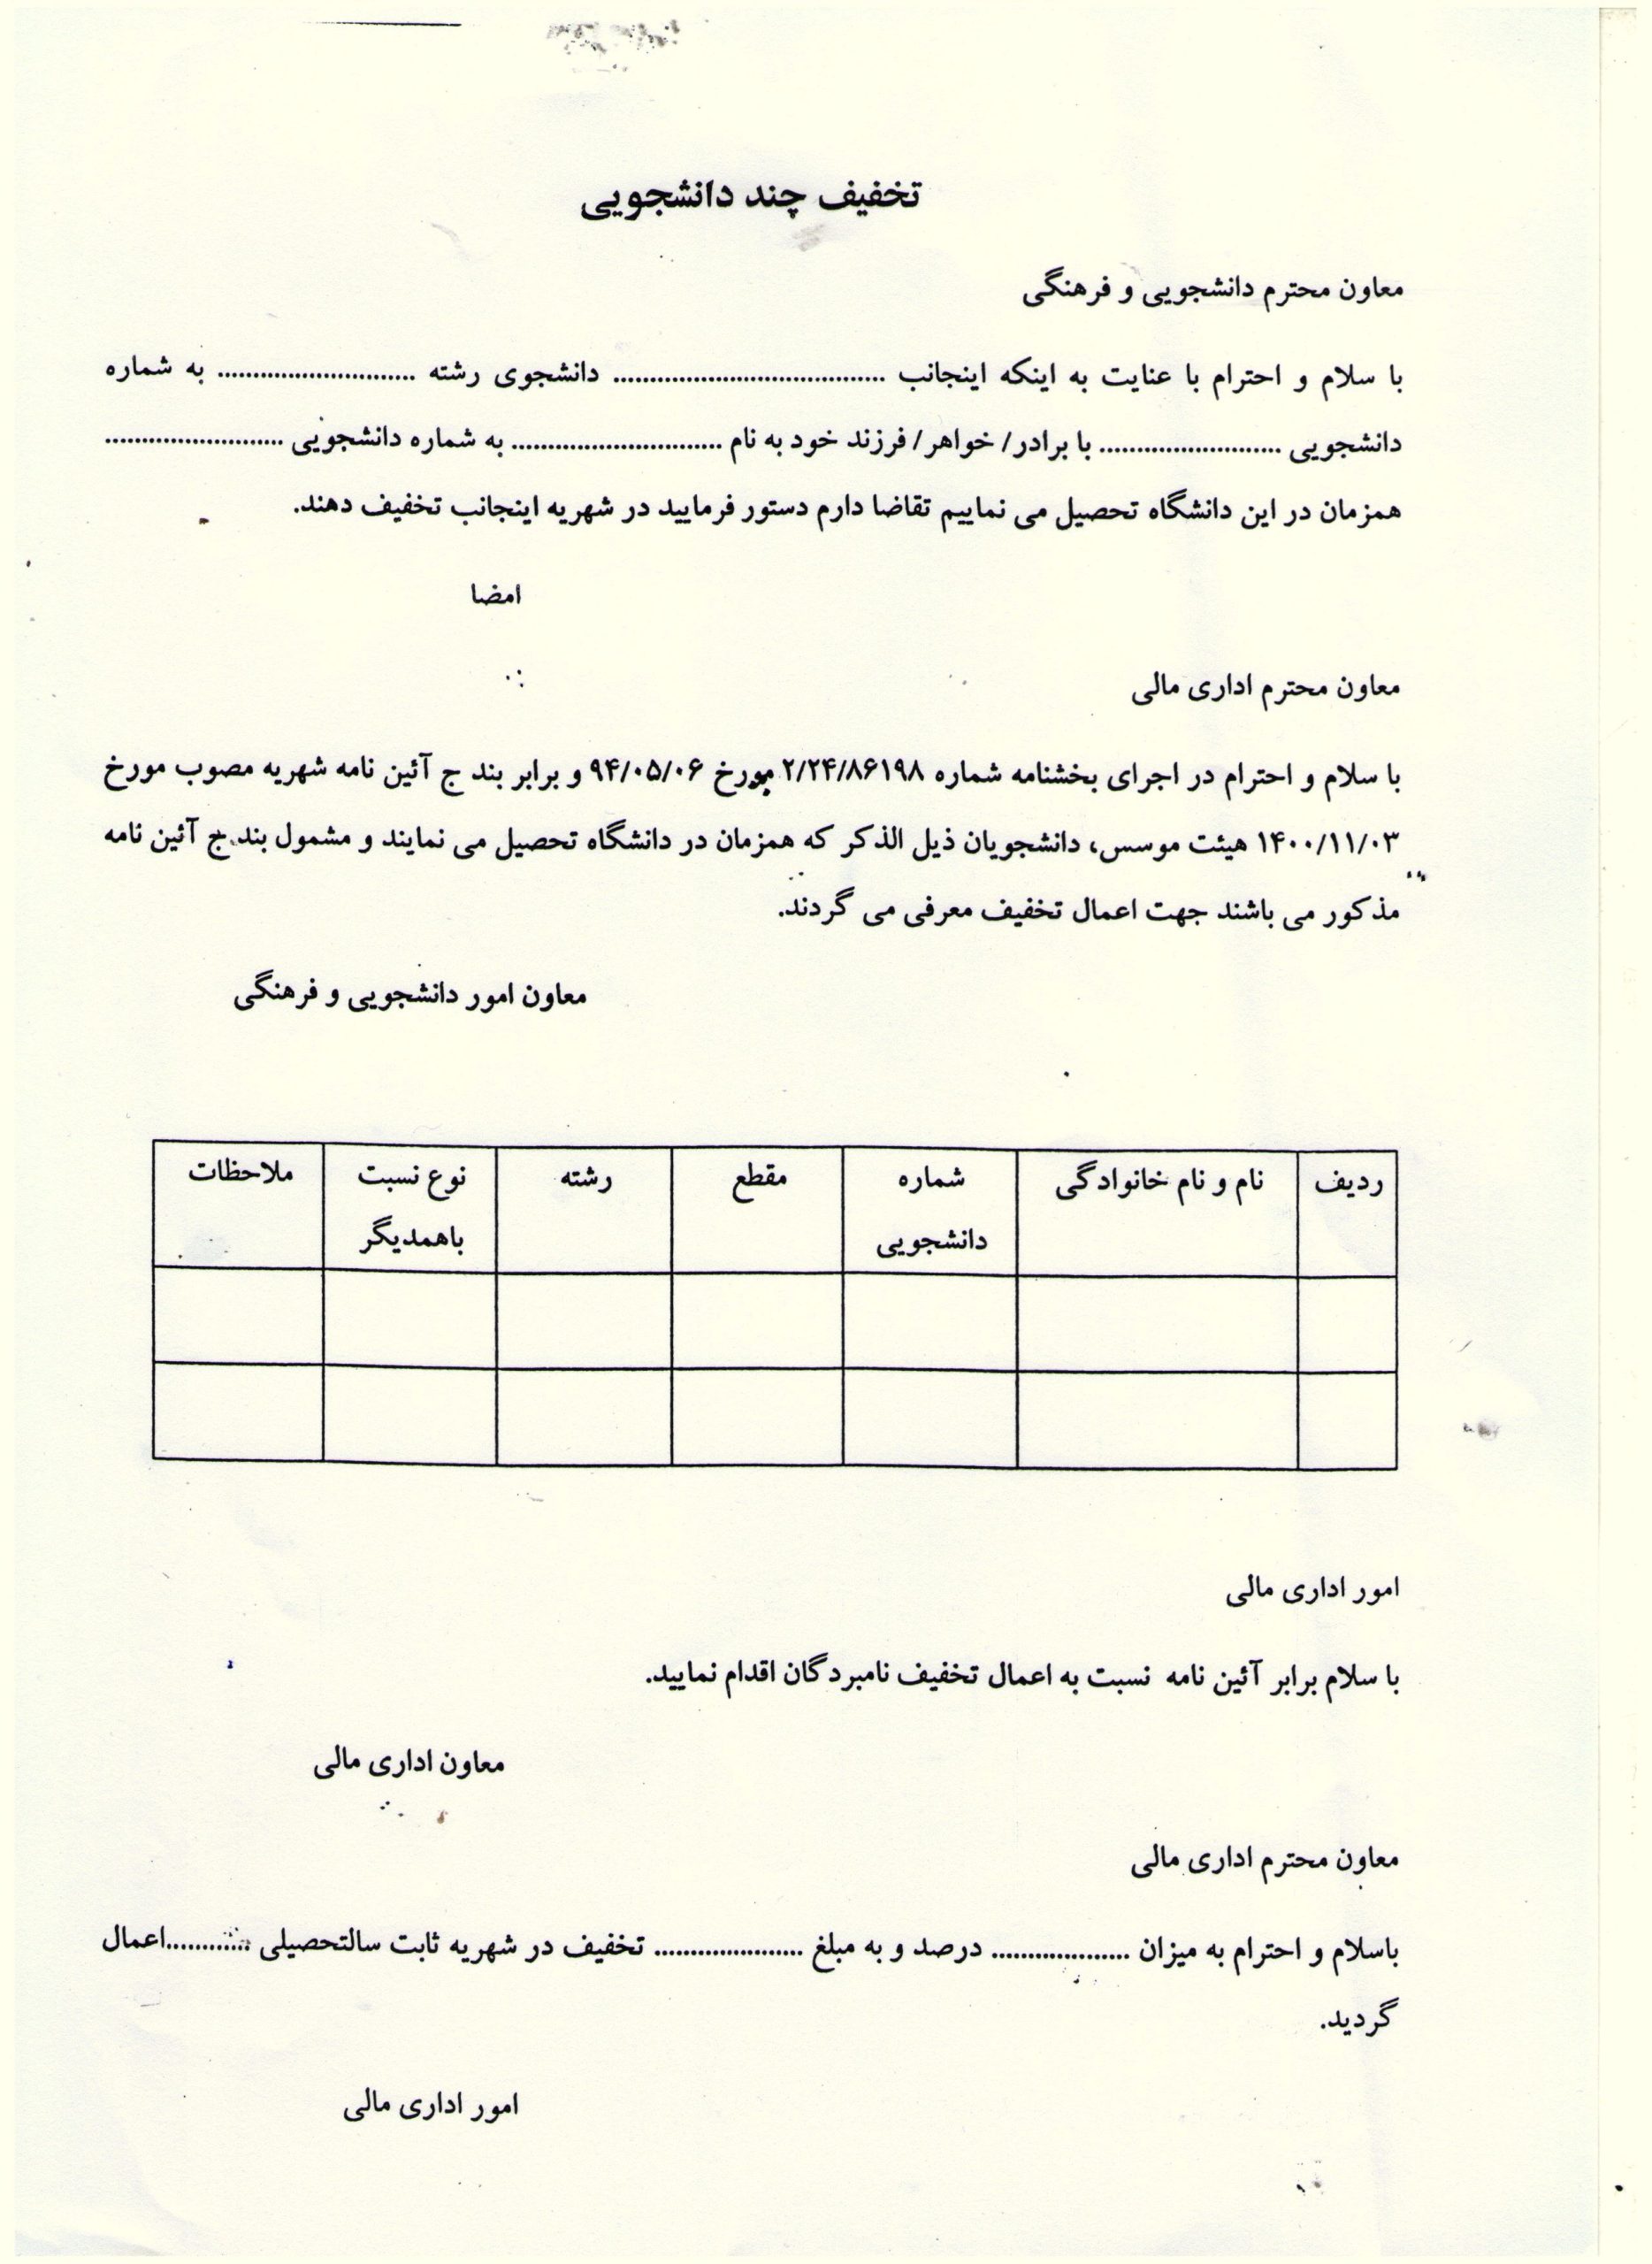 تخفیف چند دانشجویی
معاون محترم دانشجویی و فرهنگی
با سلام و احترام با عنایت به اینکه اینجانب .................................... دانشجوی رشته .......................... به شماره
دانشجویی ........................ با برادر/ خواهر/ فرزند خود به نام ............................ به شماره دانشجویی ........................
همزمان در این دانشگاه تحصیل می نماییم تقاضا دارم دستور فرمایید در شهریه اینجانب تخفیف دهند.
امضا
معاون محترم اداری مالی
با سلام و احترام در اجرای بخشنامه شماره ۲/۲۴/۸۶۱۹۸ مورخ ۹۴/۰۵/۰۶ و برابر بند ج آئین نامه شهریه مصوب مورخ
۱۴۰۰/۱۱/۰۳ هیئت موسس، دانشجویان ذیل الذکر که همزمان در دانشگاه تحصیل می نمایند و مشمول بند ج آئین نامه
مذکور می باشند جهت اعمال تخفیف معرفی می گردند.
معاون امور دانشجویی و فرهنگی
ردیف نام و نام خانوادگی شماره مقطع رشته نوع نسبت ملاحظات
دانشجویی باهمدیگر
امور اداری مالی
با سلام برابر آئین نامه نسبت به اعمال تخفیف نامبردگان اقدام نمایید.
معاون اداری مالی
معاون محترم اداری مالی
باسلام و احترام به میزان ................... درصد و به مبلغ .................... تخفیف در شهریه ثابت سالتحصیلی ............اعمال
گردید.
امور اداری مالی